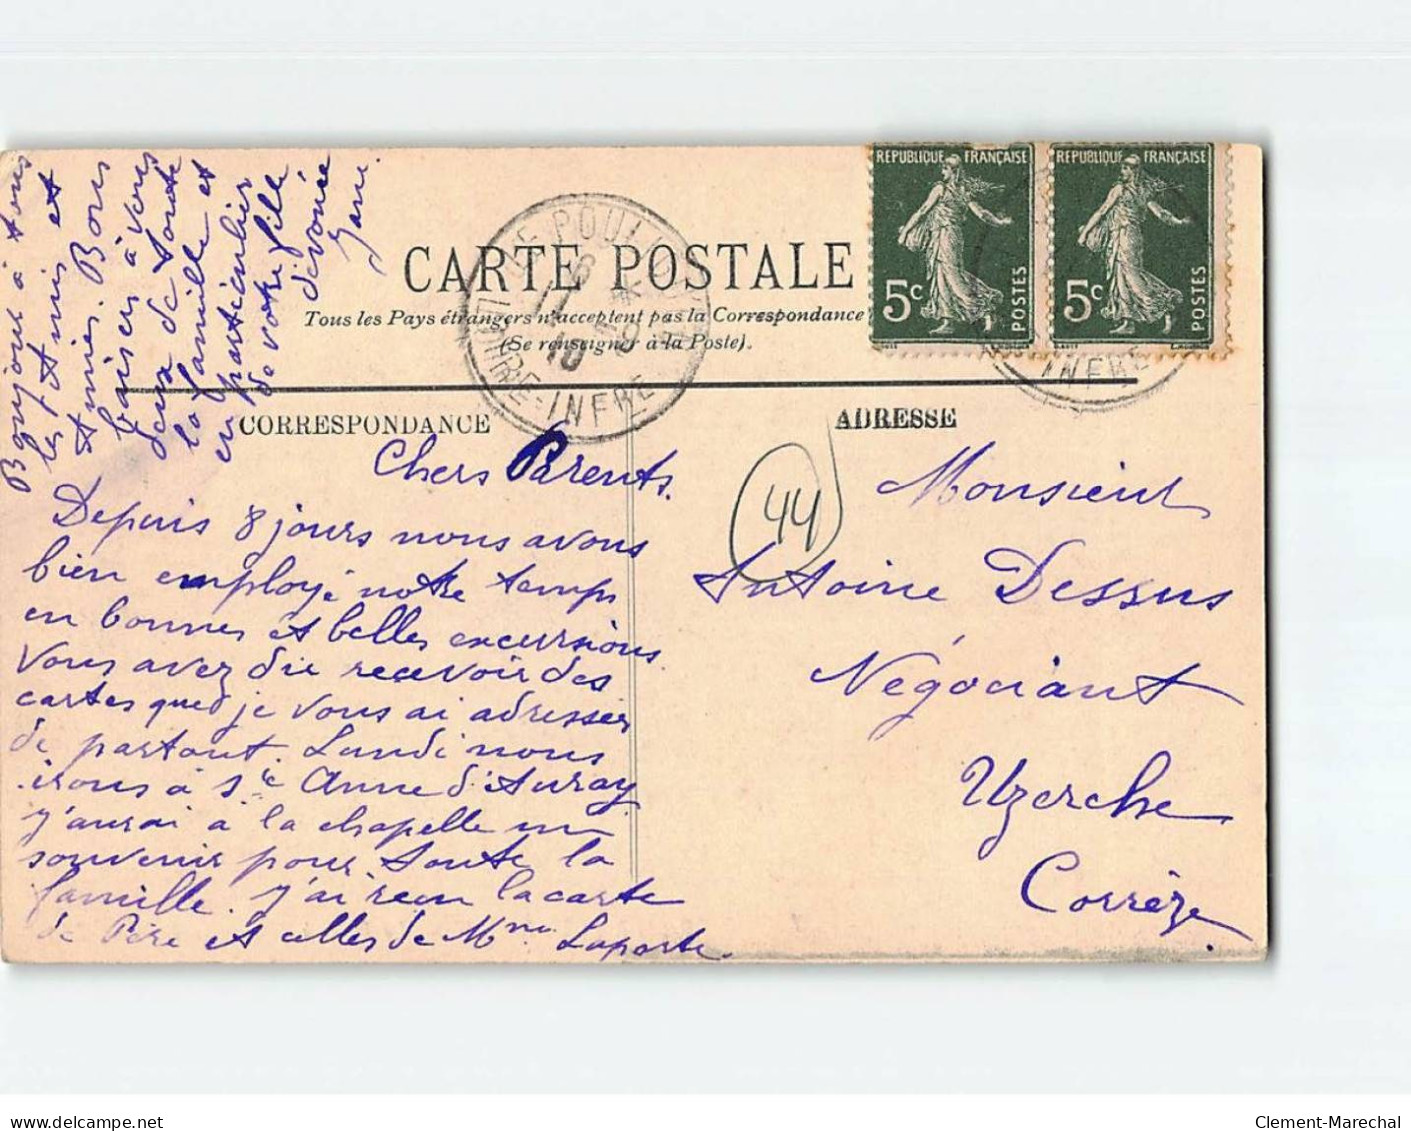 RÉPUBLIQUE FRANÇAISE
5c
POSTES
RÉPUBLIQUE FRANÇAISE
5c
POSTES
CARTE POSTALE
Tous les Pays étrangers n'acceptent pas la Correspondance
(Se renseigner à la Poste).
LE POULI
LOIRE-INFRE
10
INFRE
CORRESPONDANCE
ADRESSE
Chers Parents.
Depuis 8 jours nous avons
bien employé notre temps
en bonnes et belles excursions.
Vous avez du recevoir des
cartes que je vous ai adressées
de partout. Lundi nous
irons à Ste Anne d'Auray
j'aurai à la chapelle un
souvenir pour toute la
famille. J'ai reçu la carte
de Père et celles de Mme Laporte.
Bonjour à tous
les Amis et
Amies. Bons
baisers à vous
deux de toute
la famille et
en particulier
de votre fille
dévouée
Jane.
44
Monsieur
Antoine Dessus
Négociant
Uzerche
Corrèze.
Clement-Marechal
www.delcampe.net